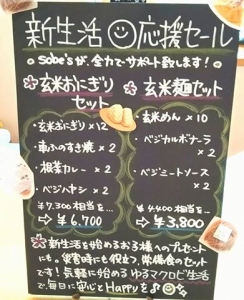 新生活☺応援セール
sobe'sが、全力でサポート致します!
玄米おにぎりセット
・玄米おにぎり×12
・車ふのすき焼×2
・根菜カレー×2
・ベジハヤシ×2
¥7,300相当を…
⇒ ¥6,700
玄米麺セット
・玄米めん×10
・ベジカルボナーラ×2
・ベジミートソース×2
¥4,400相当を…
⇒ ¥3,800
新生活を始めるお子様へプレゼント
にも。災害時にも役立つ、常備食のセット
です!気軽に始めるゆるマクロビ生活
で、毎日に安心とHappyを♪☺